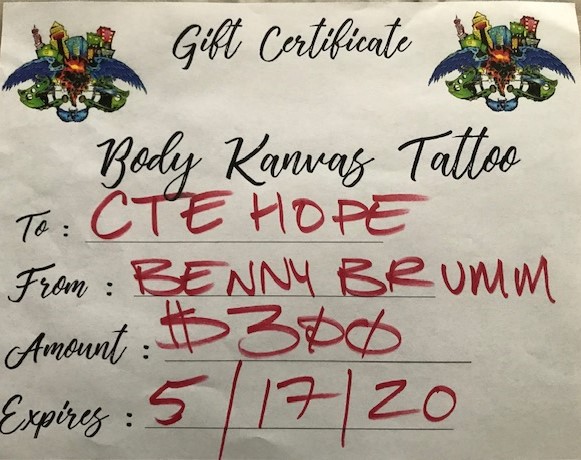 Gift Certificate
Body Kanvas Tattoo
To : CTE HOPE
From : BENNY BRUMM
Amount : $300
Expires : 5/17/20